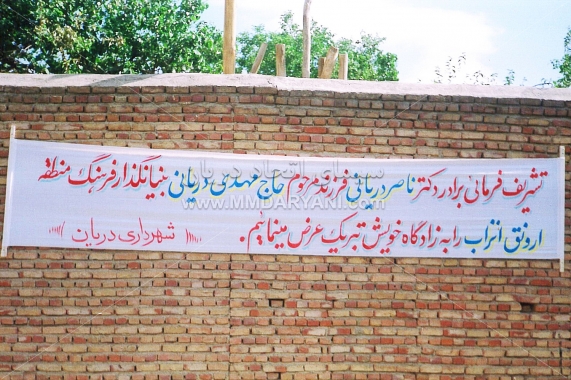 تشریف فرمائی برادر دکتر ناصر دریانی فرزند مرحوم حاج مهدی دریانی بنیانگذار فرهنگ منطقه
ارونق انزاب را به زادگاه خویش تبریک عرض مینمائیم.
شهرداری دریان
WWW.MMDARYANI.COM